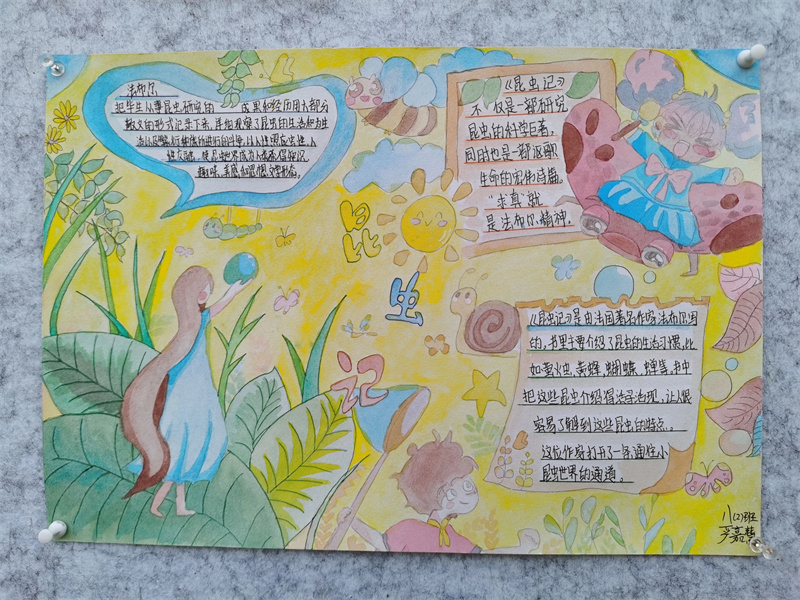 法布尔
把毕生从事昆虫研究的 成果和经历用大部分
散文的形式记录下来,详细观察了昆虫的生活和为生
以人性照应虫性,
使昆虫世界成为人类获得知识、
趣味、美感和思想
《昆虫记》
不仅是一部研究
昆虫的科学巨著,
同时也是一部讴歌
生命的宏伟诗篇。
“求真”就
是法布尔精神。
昆
虫
记
《昆虫记》是由法国著名作家法布尔写
的,书里主要介绍了昆虫的生活习惯,比
如萤火虫、黄蜂、蝴蝶、蝉等,书中
把这些昆虫介绍得活灵活现,让人很
容易了解到这些昆虫的特点。
这位作家打开了一条通往小
昆虫世界的通道。
八(2)班
嘉慧